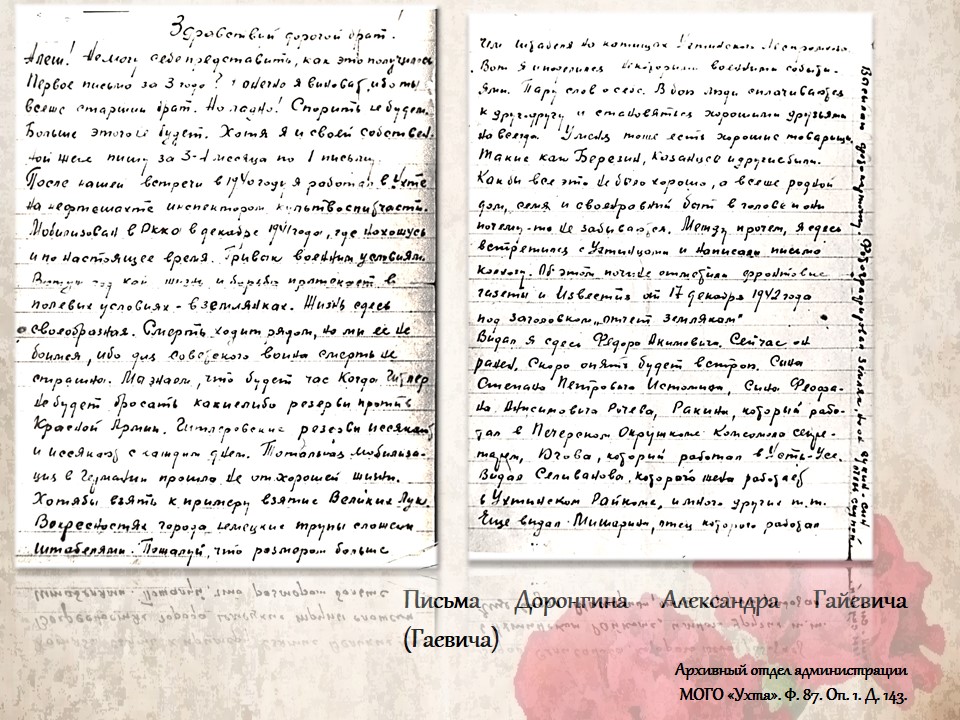 Здравствуй дорогой брат!
Алеш! Не могу себе представить, как это получилось
Первое письмо за 3 года? Конечно я виноват, ибо ты
всеже старший брат. Но ладно! Спорить не будем.
Больше этого не будет. Хотя я и своей собствен-
ной жене пишу за 3-4 месяца по 1 письму.
После нашей встречи в 1940 году я работал в Ухте
на нефтешахте инспектором культвоспитчасти.
Мобилизован в РККА в декабре 1941 года, где нахожусь
и по настоящее время. Привык военным условиям.
жизнь и борьба протекает в
полевых условиях - в землянках. Жизнь здесь
своеобразная. Смерть ходит рядом, но мы ее не
боимся, ибо для советского воина смерть не
страшна. Мы знаем, что будет час когда Гитлер
не будет бросать какие либо резервы против
Красной Армии. Гитлеровские резервы иссякают
и иссякают с каждым днем. Тотальная мобилиза-
ция в Германии прошла не от хорошей жизни.
Хотябы взять к примеру взятие Великие Луки.
В окрестностях города немецкие трупы сложены
штабелями. Пожалуй, что размером больше
чем штабеля на катищах Ухтинского Леспромхоза.
Вот я и поделился некоторыми военными событи-
ями. Пару слов о себе. В бою люди сплачиваются
к друг-другу и становяться хорошими друзьями
навсегда. У меня тоже есть хорошие товарищи,
такие как Березин, Казанцев и другие были.
Как бы все это не было хорошо, а всеже родной
дом, семя и своенравный быт в голове и они
почему-то не забываются. Между прочем, я здесь
встретился с Ухтинцами и написали письмо
колхозу. Об этом почине отметили фронтовые
газеты и Известия от 17 декабря 1942 года
под заголовком „отчет землякам"
Видал я здесь Федора Акимовича. Сейчас он
ранен. Скоро опять будет в строю. Сына
Степана Петровича Истомина, сына Феофа-
на Анисимовича Рочева, Ракина, который рабо-
тал в Печерском Окружкоме Комсомола секре-
тарем, Югова, который работал в Усть-Усе.
Видал Селиванова, которого жена работает
в Ухтинском Райкоме, и много других т.т.
Еще видал Мишарина, отец которого работал
Письма Доронгина Александра Гайевича
(Гаевича)
Архивный отдел администрации
МОГО «Ухта». Ф. 87. Оп. 1. Д. 143.